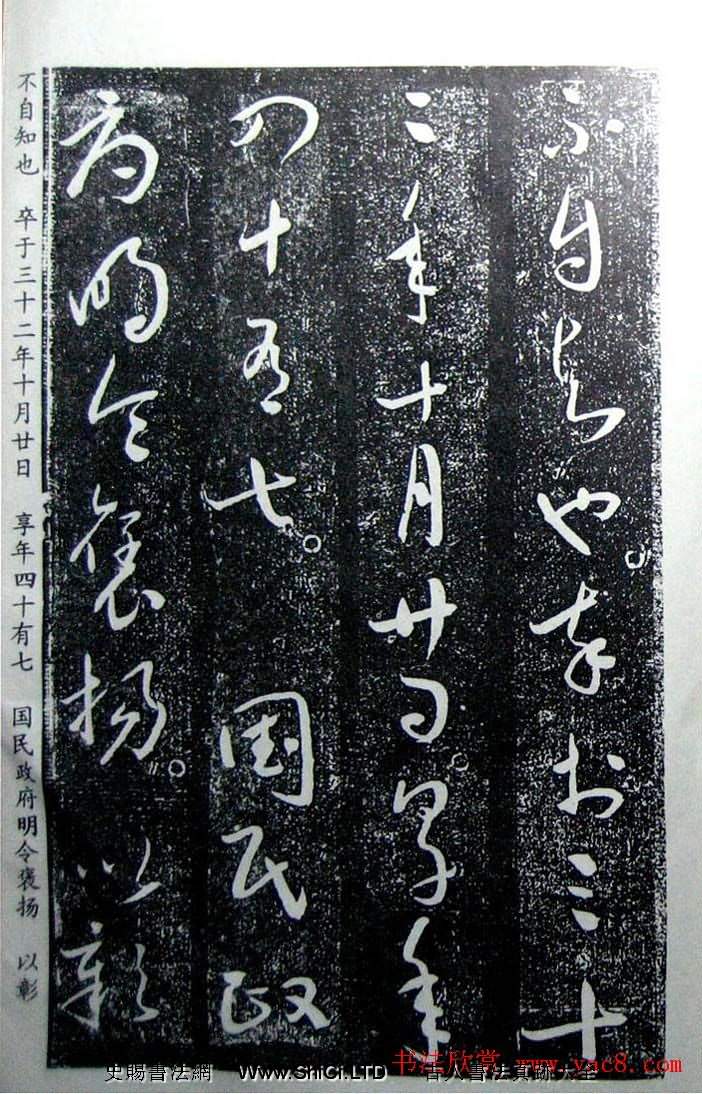 不自知也。卒於三十
二年十月廿日。享年
四十有七。國民政
府明令褒揚。以彰
不自知也 卒于三十二年十月廿日 享年四十有七 国民政府明令褒扬 以彰
书法欣赏 www.yac8.com
史賜書法網 www.ShiCi.LTD 古人書法真跡大全